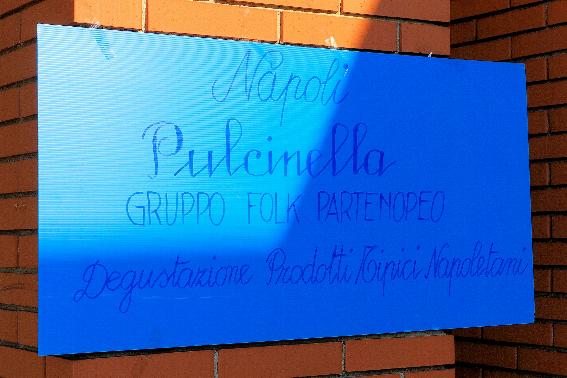 Napoli
Pulcinella
GRUPPO FOLK PARTENOPEO
Degustazione Prodotti Tipici Napoletani